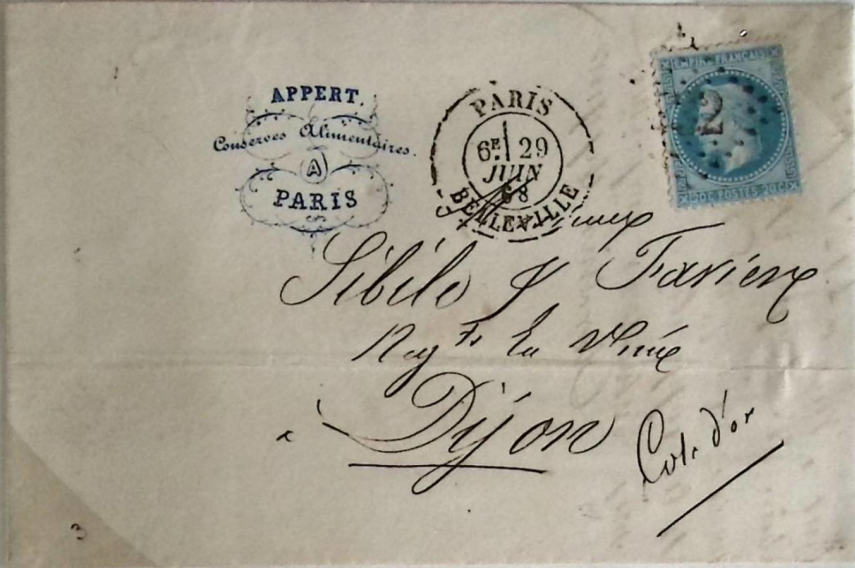 APPERT.
Conserves Alimentaires.
A
PARIS
PARIS
6E 29
JUIN
68
BELLEVILLE
EMPIRE FRANÇAIS
2
20C POSTES 20C
Sibille & Favier
Négts en Vins
Dijon
Cote d'or
3